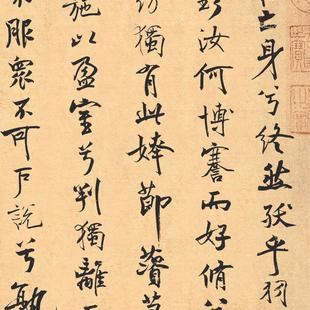 亡身兮終然殀乎羽
野汝何博謇而好脩兮
紛獨有此姱節薋
葹以盈室兮判獨離
服衆不可戶說兮孰